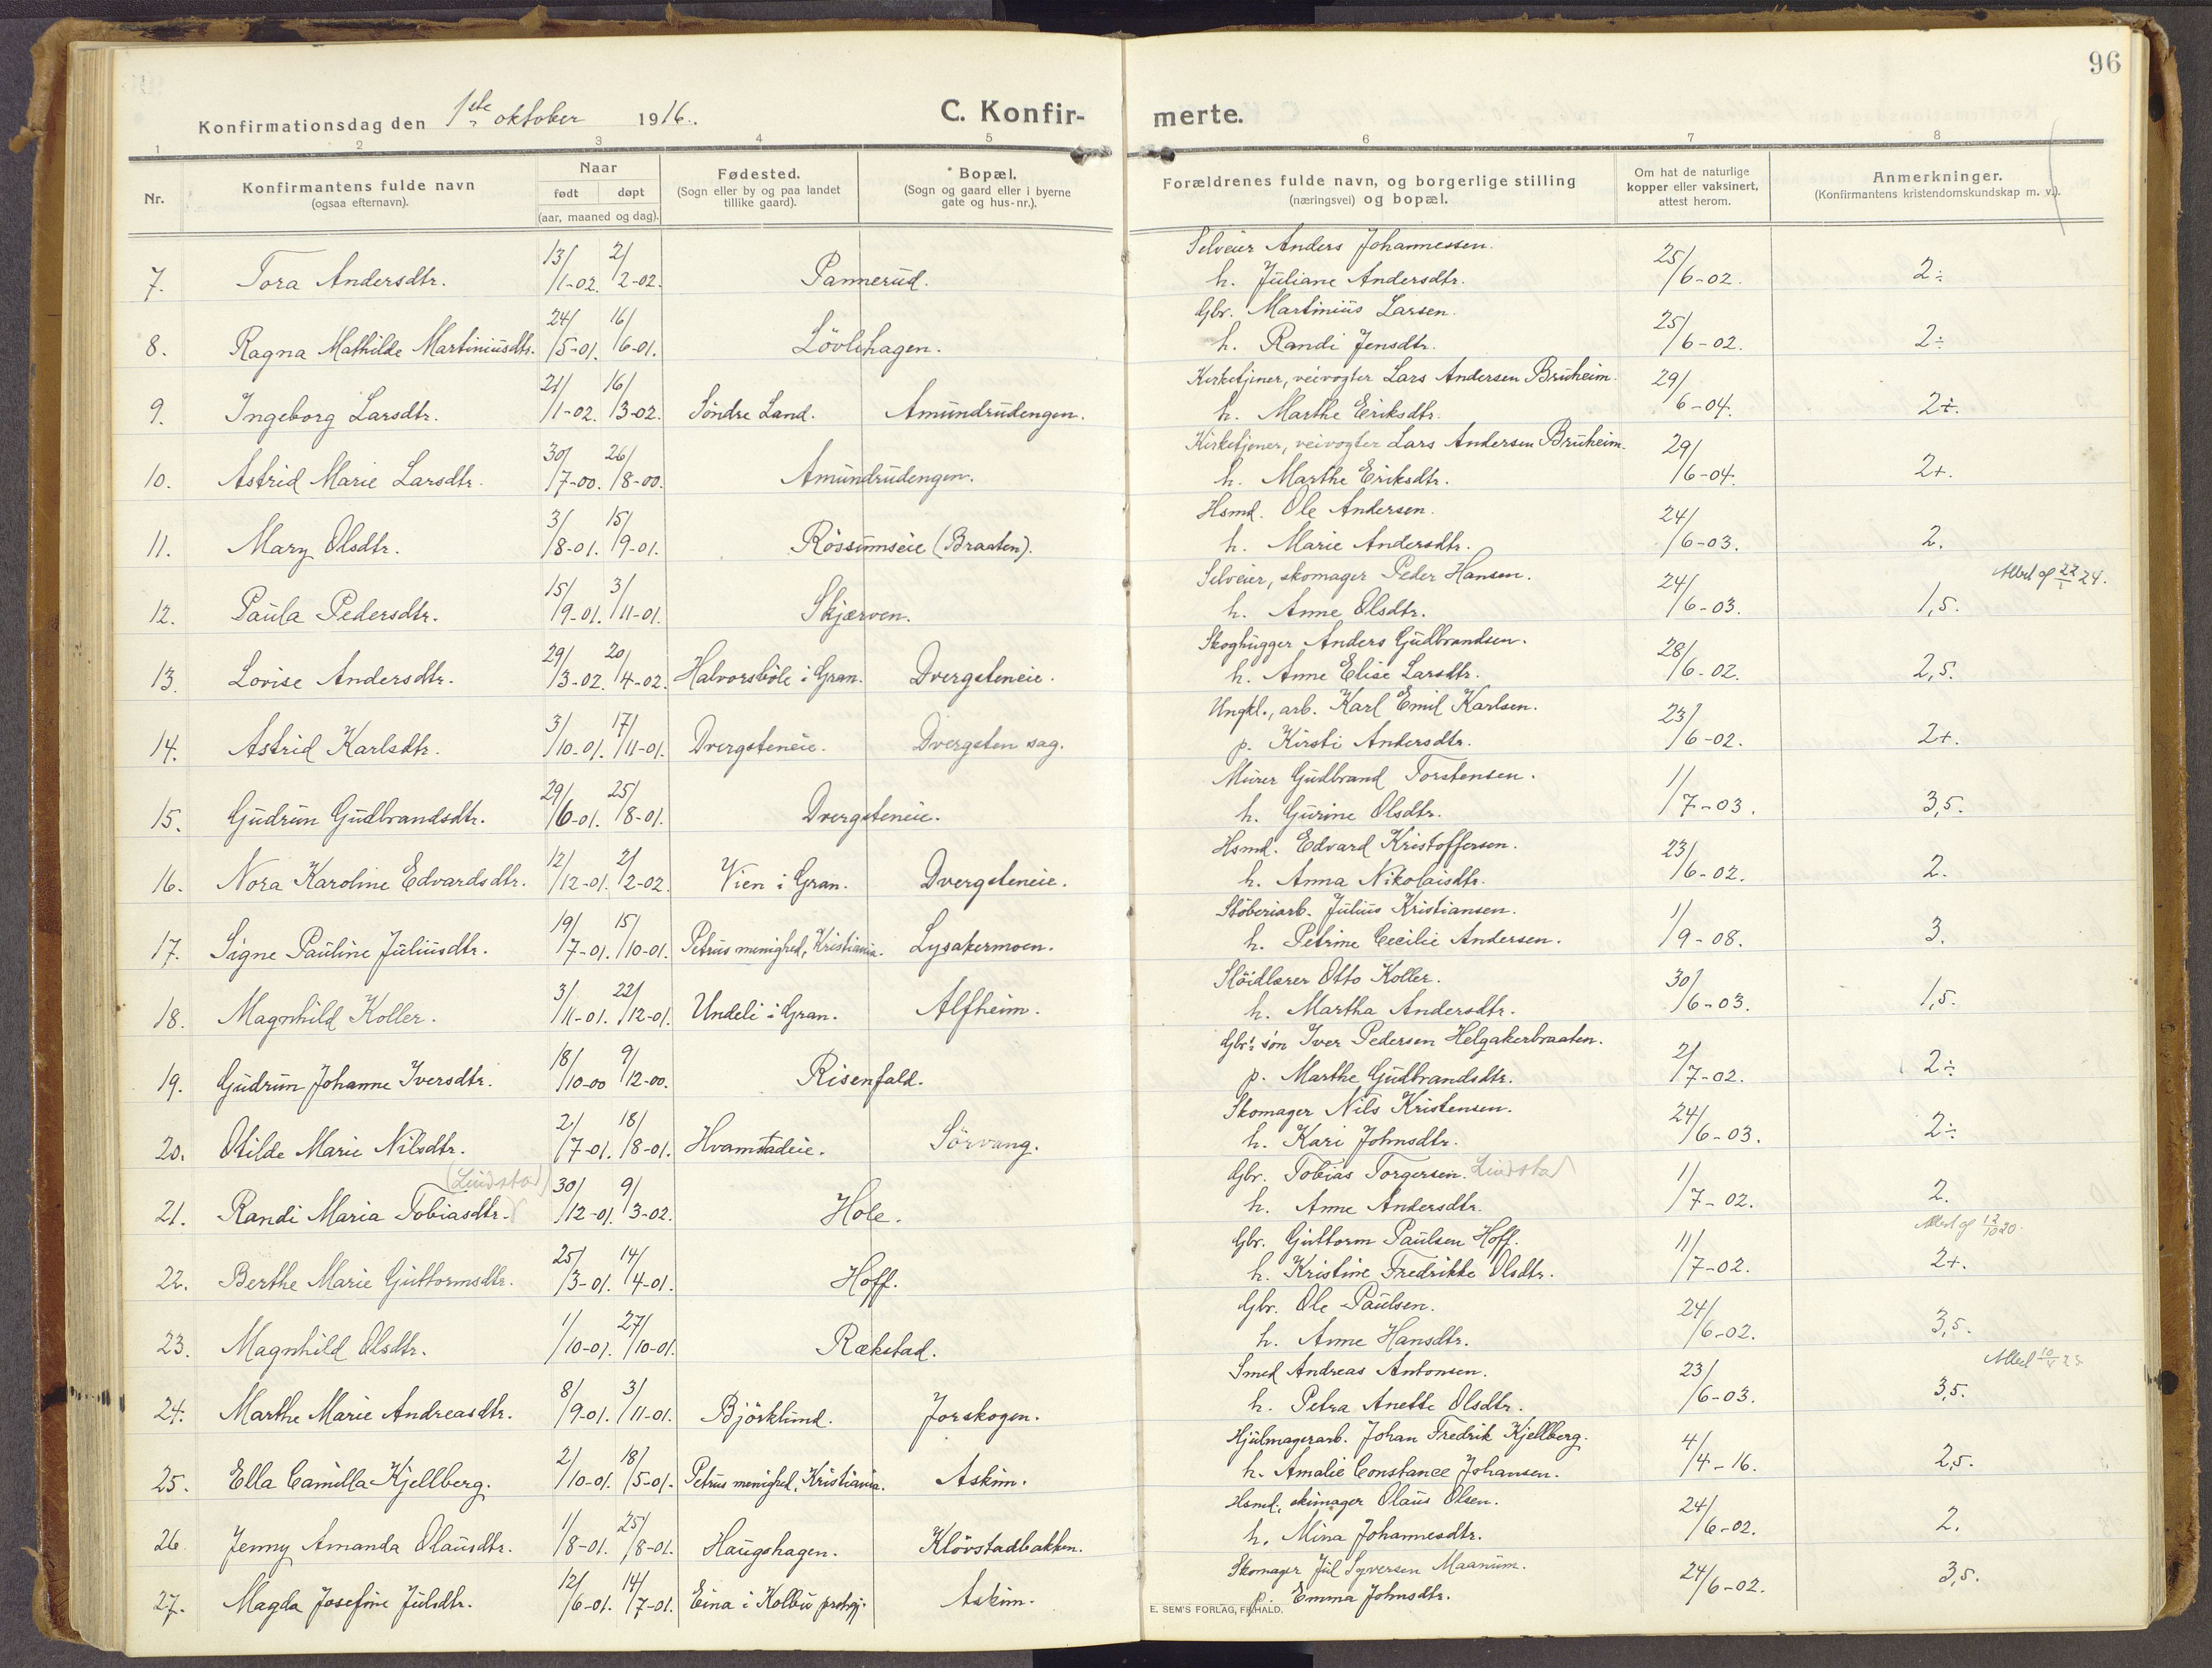 96
Konfirmationsdag den 1ste oktober 1916.
C. Konfirmerte.
1 2 3 4 5 6 7 8
Nr.
Konfirmantens fulde navn
(ogsaa efternavn).
Naar
født døpt
(aar, maaned og dag).
Fødested.
(Sogn eller by og paa landet
tillike gaard).
Bopæl.
(Sogn og gaard eller i byerne
gate og hus-nr.).
Forældrenes fulde navn, og borgerlige stilling
(næringsvei) og bopæl.
Om hat de naturlige
kopper eller vaksinert,
attest herom.
Anmerkninger.
(Konfirmantens kristendomskundskap m. v.).
Selveier Anders Johannessen.
7. Tora Andersdtr. 13/1-02. 2/2-02. Pannerud. h. Juliane Andersdtr. 25/6-02. 2÷
Gbr. Martinius Larsen.
8. Ragna Mathilde Martiniusdtr. 24/5-01. 16/6-01. Lövlihagen. h. Randi Jensdtr. 25/6-02. 2÷
Kirketjener, veivogter Lars Andersen Bruheim.
9. Ingeborg Larsdtr. 21/1-02. 16/3-02. Söndre Land. Amundrudengen. h. Marthe Eriksdtr. 29/6-04. 2+.
Kirketjener, veivogter Lars Andersen Bruheim.
10. Astrid Marie Larsdtr. 30/7-00. 26/8-00. Amundrudengen. h. Marthe Eriksdtr. 29/6-04. 2+.
Hsmd. Ole Andersen.
11. Mary Olsdtr. 3/8-01. 15/9-01. Rössumseie (Braaten). h. Marie Andersdtr. 24/6-03. 2.
Selveier, skomager Peder Hansen. 22/1 24.
12. Paula Pedersdtr. 15/9-01. 3/11-01. Skjærven. h. Anne Olsdtr. 24/6-03. 1,5.
Skoghugger Anders Gudbrandsen.
13. Lovise Andersdtr. 29/3-02. 20/4-02. Halvorsböle i Gran. Dvergsteneie. h. Anne Elise Larsdtr. 28/6-02. 2,5.
Ungkl., arb. Karl Emil Karlsen.
14. Astrid Karlsdtr. 3/10-01. 17/11-01. Dvergsteneie. Dvergsten sag. p. Kirsti Andersdtr. 23/6-02. 2+.
Murer Gudbrand Torstensen.
15. Gudrun Gudbrandsdtr. 29/6-01. 25/8-01. Dvergsteneie. h. Gurine Olsdtr. 1/7-03. 3,5.
Hsmd. Edvard Kristoffersen.
16. Nora Karoline Edvardsdtr. 12/12-01. 2/2-02. Vien i Gran. Dvergsteneie. h. Anna Nikolaisdtr. 23/6-02. 2.
Stöberiarb. Julius Kristiansen.
17. Signe Pauline Juliusdtr. 19/7-01. 15/10-01. Petrus menighed, Kristiania. Lysakermoen. h. Petrine Cecilie Andersen. 1/9-08. 3.
Slöidlærer Otto Koller.
18. Magnhild Koller. 3/11-01. 22/12-01. Undeli i Gran. Alfheim. h. Martha Andersdtr. 30/6-03. 1,5.
Gbr's sön Iver Pedersen Helgakerbraaten.
19. Gudrun Johanne Iversdtr. 18/10-00 9/12-00. Risenfald. p. Marthe Gudbrandsdtr. 2/7-02. 2÷
Skomager Nils Kristensen.
20. Otilde Marie Nilsdtr. 2/7-01. 18/8-01. Hvamstadeie. Sörvang. h. Kari Johnsdtr. 24/6-03. 2÷
(Lindstad) Gbr. Tobias Torgersen. Lindstad
21. Randi Maria Tobiasdtr. 30/12-01. 9/3-02. Hole. h. Anne Andersdtr. 1/7-02. 2.
Gbr. Guttorm Paulsen Hoff. 12/10 20.
22. Berthe Marie Guttormsdtr. 25/3-01. 14/4-01. Hoff. h. Kristine Fredrikke Olsdtr. 11/7-02. 2+.
Gbr. Ole Paulsen.
23. Magnhild Olsdtr. 1/10-01. 27/10-01. Rækstad. h. Anne Hansdtr. 24/6-02. 3,5.
Smed Andreas Antonsen.
24. Marthe Marie Andreasdtr. 8/9-01. 3/11-01. Björklund. Jorskogen. h. Petra Anette Olsdtr. 23/6-03. 3,5.
Hjulmagerarb. Johan Fredrik Kjellberg.
25. Ella Camilla Kjellberg. 2/10-01. 18/5-01. Petrus menighed, Kristiania. Askim. h. Amalie Constance Johansen. 4/4-16. 2,5.
Hsmd., skimager Olaus Olsen.
26 Jenny Amanda Olausdtr. 1/8-01. 25/8-01. Haugshagen. Klövstadbakken. h. Mina Johannesdtr. 24/6-02. 2.
Skomager Jul Syversen Maanum.
27. Magda Josefine Julsdtr. 12/6-01. 14/7-01. Eina i Kolbu prstgj. Askim. p. Emma Johnsdtr. 24/6-02. 3,5.
E. SEM'S FORLAG, FR.HALD.